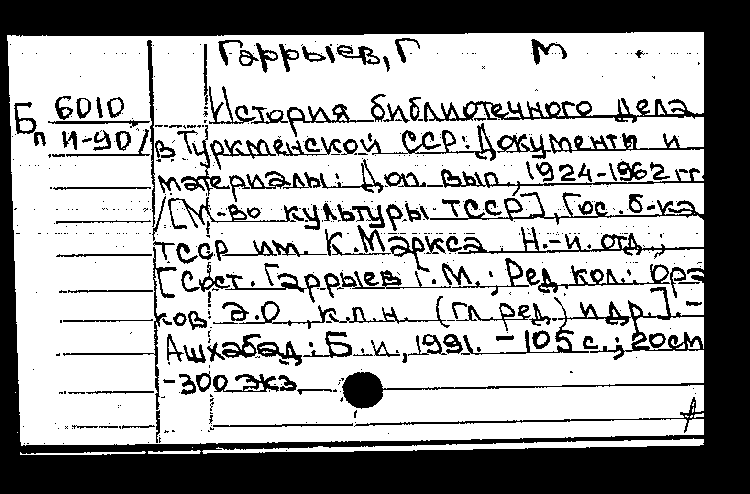 Гаррыев, Г М
Бп 6010
И-90/
История библиотечного дела
в Туркменской ССР: Документы и
материалы: Доп. вып., 1924-1962 гг.
/[М-во культуры ТССР], Гос. б-ка
ТССР им. К. Маркса. Н.-и. отд.;
[Сост. Гаррыев Г.М.; Ред. кол.: Ора
ков Э.О., к.п.н. (гл. ред.) и др.]. -
Ашхабад: Б. и., 1991. - 105 с.; 20см
-300 экз.